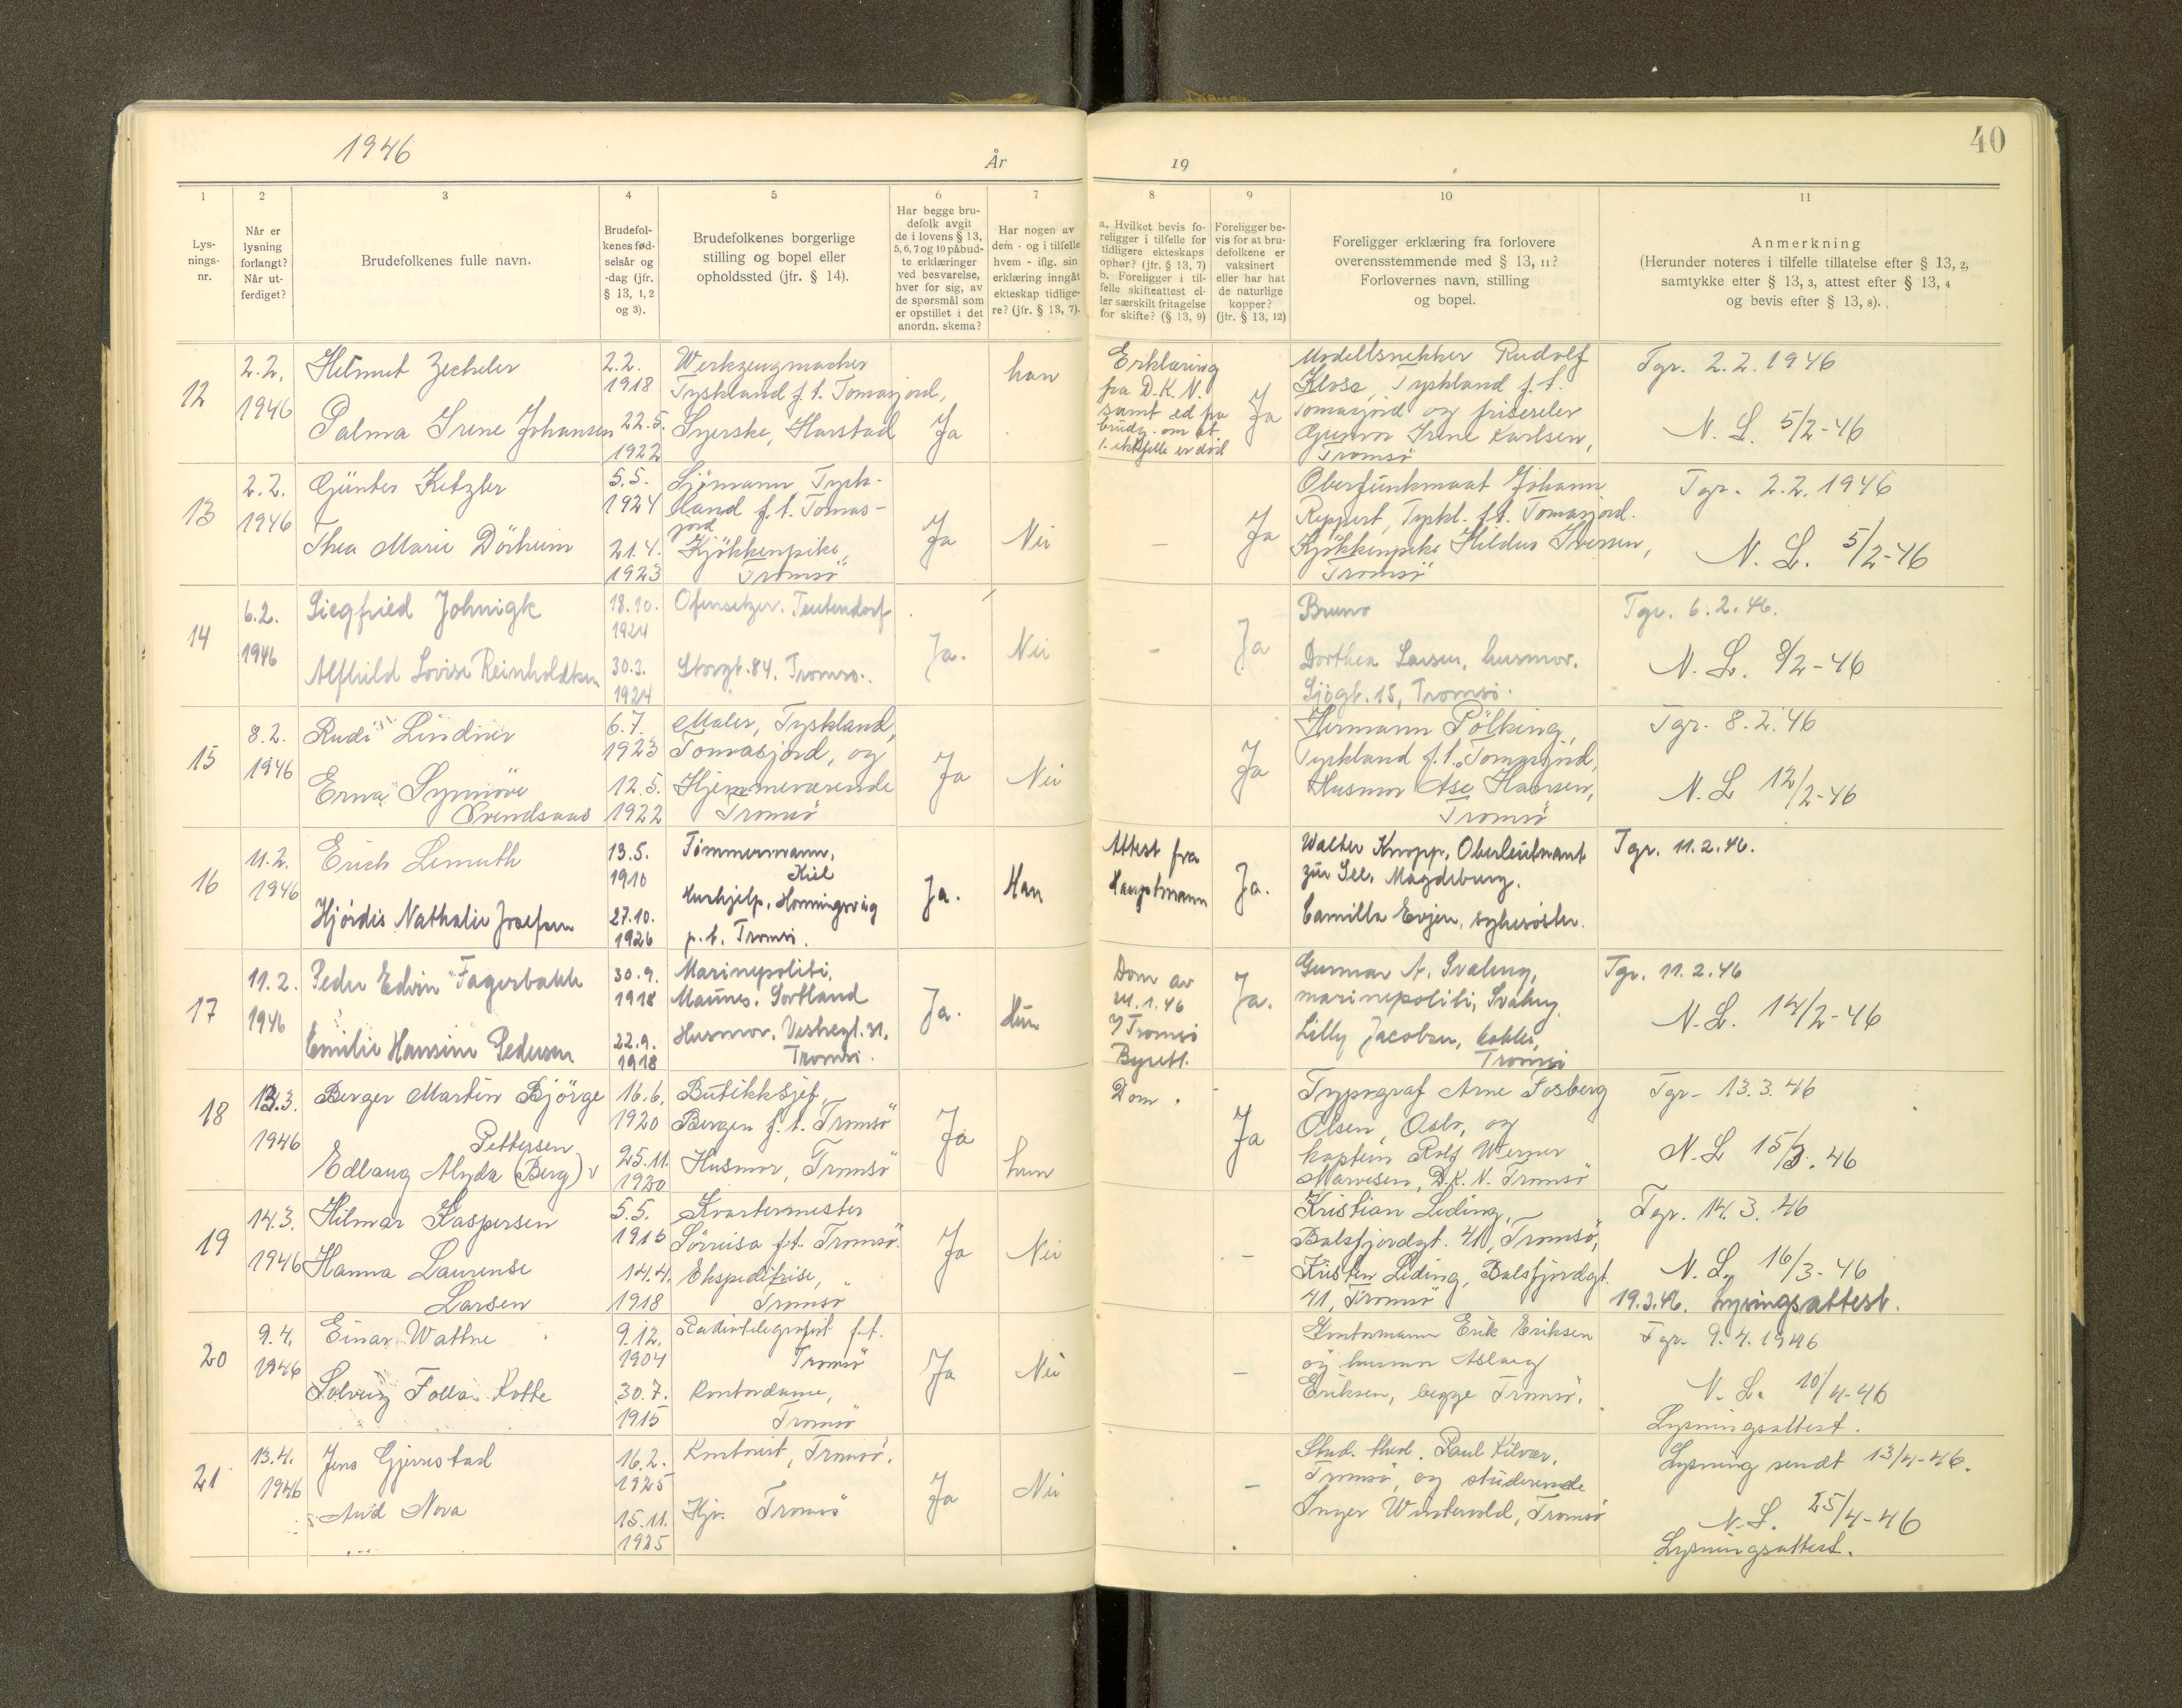 1946
År
19
40
1
2
3
4
5
6
7
8
9
10
11
Lys-
nings-
nr.
Når er
lysning
forlangt?
Når ut-
ferdiget?
Brudefolkenes fulle navn.
Brudefol-
kenes fød-
selsår og
-dag (jfr.
§ 13, 1, 2
og 3).
Brudefolkenes borgerlige
stilling og bopel eller
opholdssted (jfr. § 14).
Har begge bru-
defolk avgit
de i lovens § 13,
5, 6, 7 og 10 påbud-
te erklæringer
ved besvarelse,
hver for sig, av
de spørsmål som
er opstillet i det
anordn. skema?
Har nogen av
dem - og i tilfelle
hvem - iflg. sin
erklæring inngåt
ekteskap tidlige-
re? (jfr. § 13, 7).
a. Hvilket bevis fo-
religger i tilfelle for
tidligere ekteskaps
ophør? (jfr. § 13, 7)
b. Foreligger i til-
felle skifteattest el-
ler særskilt fritagelse
for skifte? (§ 13, 9)
Foreligger be-
vis for at bru-
defolkene er
vaksinert
eller har hat
de naturlige
kopper?
(jfr. § 13, 12)
Foreligger erklæring fra forlovere
overensstemmende med § 13, 11?
Forlovernes navn, stilling
og bopel.
Anmerkning
(Herunder noteres i tilfelle tillatelse efter § 13, 2,
samtykke efter § 13, 3, attest efter § 13, 4
og bevis efter § 13, 8).
12
2.2.
1946
Helmut Zecheler
Palma Irene Johansen
2.2.
1918
22.5.
1922
Werkzeugmacher
Tyskland f.t. Tomasjord,
Syerske, Harstad
Ja
han
Erklæring
fra D.K.N.
samt ed fra
brudg. om at
1. ektefelle er død
Ja
Modellsnekker Rudolf
Klose, Tyskland f.t.
Tomasjord og friserelev
Gunvor Irene Karlsen,
Tromsö
Tgr. 2.2.1946
N. L. 5/2-46
13
2.2.
1946
Günter Ketzler
Thea Marie Dörheim
5.5.
1924
21.4.
1923
Sjömann Tysk-
land f.t. Tomas-
jord
Kjökkenpike,
Tromsö
Ja
Nei
–
Ja
Oberfunkmaat Johann
Reppert, Tyskl. f.t. Tomasjord.
Kjökkenpike Hildur Iversen,
Tromsö
Tgr. 2.2.1946
N. L. 5/2-46
14
6.2.
1946
Siegfried Johnigk
Alfhild Lovise Reinholdtsen
18.10.
1924
30.3.
1924
Ofensetzer. Teutendorf
Storgt. 84, Tromsö.
Ja.
Nei
–
Ja
Bruno
Dorthea Larsen, husmor.
Sjögt. 15, Tromsö.
Tgr. 6.2.46.
N. L. 8/2-46
15
8.2.
1946
Rudi Lindner
Erna Synnöve
Svendsaas
6.7.
1923
12.5.
1922
Maler, Tyskland,
Tomasjord, og
Hjemmeværende
Tromsö
Ja
Nei
Ja
Hermann Pölking,
Tyskland f.t. Tomasjord,
Husmor Åse Hansen,
Tromsö
Tgr. 8.2.46
N. L 12/2-46
16
11.2.
1946
Erich Lemuth
Hjördis Nathalie Josefsen
13.5.
1910
27.10.
1926
Tömmermann,
Kiel
Hushjelp, Honningsvåg
p.t. Tromsö.
Ja.
Han
Attest fra
Hauptmann
Ja.
Walter Knopp, Oberleutnant
zur See, Magdeburg.
Camilla Evjen, sykesöster.
Tgr. 11.2.46.
17
11.2.
1946
Peder Edvin Fagerbakk
Emilie Hansine Pedersen
30.9.
1918
22.9.
1918
Marinepoliti,
Maunes, Sortland
Husmor, Vestregt. 31,
Tromsö.
Ja.
Hun
Dom av
Tromsö
Byrett.
Ja.
Gunnar A. Svaleng,
marinepoliti, Svaleng.
Lilly Jacobsen, kokke,
Tromsö
Tgr. 11.2.46
N. L. 14/2-46
18
13.3.
1946
Berger Martin Bjørge
Pettersen
Edlaug Alyda (Berg)
16.6.
1920
25.11.
1920
Butikksjef,
Bergen f.t. Tromsö
Husmor, Tromsö
Ja
hun
Dom.
Ja
Typograf Arne Fosberg
Olsen, Oslo, og
kaptein Rolf Werner
Marvesen, D.K.N. Tromsö
Tgr. 13.3.46
N. L 15/3.46
19
14.3.
1946
Hilmar Kaspersen
Hanna Laurense
Larsen
5.5.
1915
14.4.
1918
Kvartermester
Sörreisa f.t. Tromsö.
Ekspeditrise,
Tromsö
Ja
Nei
–
Kristian Liding,
Balsfjordgt. 41, Tromsö,
Kirsten Liding, Balsfjordgt.
41, Tromsö
Tgr. 14.3.46
N. L. 16/3-46
19.3.46. Lysingsattest.
20
9.4.
1946
Einar Wattne
Solveig Folla Kotte
9.12.
1904
30.7.
1915
Radiotelegrafist f.t.
Tromsö
Kontordame,
Tromsö
Ja
Nei
–
Kontormann Erik Eriksen
og husmor Aslaug
Eriksen, begge Tromsö.
Tgr. 9.4.1946
N. L. 10/4-46
Lysningsattest.
21
13.4.
1946
Jens Gjerrestad
Aud Nova
16.2.
1925
15.11.
1925
Kontorist, Tromsö.
Hjv. Tromsö
Ja
Nei
–
Stud. theol. Paul Kilvær,
Tromsö, og studerende
Inger Wintervold, Tromsö
Lysning sendt 13/4-46.
N. L. 25/4-46
Lysningsattest.